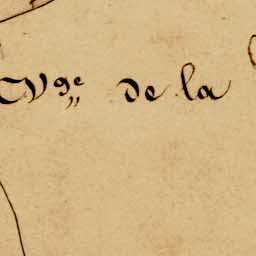 CVᵍᵉ de la